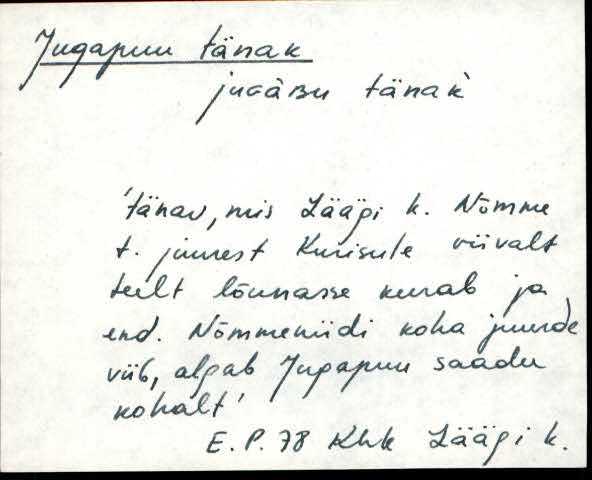 Jugapuu tänak
jugaBu tänak
'tänav, mis Läägi k. Nõmme
t. juurest Kurisule viivalt
teelt lõunasse keerab ja
end. Nõmmeniidi koha juurde
viib, algab Jugapuu saadu
kohalt'
E. P. 78 Khk Läägi k.